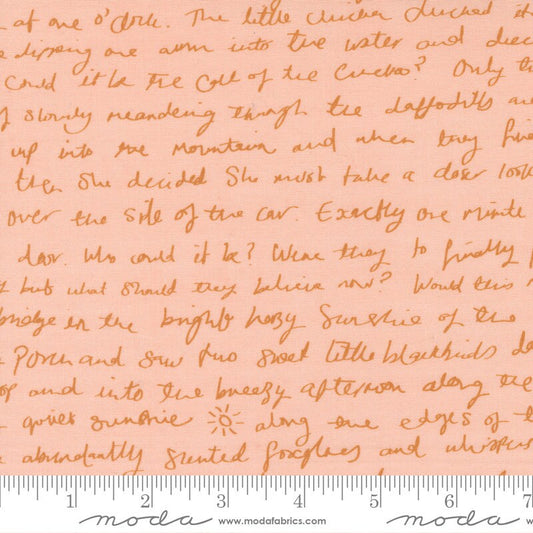 at one o'clock. The little chicken clucked
dipping one arm into the water and
Could it be the Call of the Cuckoo? Only
slowly meandering though the daffodills
up into the mountain and when they
then She decided She must take a closer look
over the side of the car. Exactly one minute
door. Who could it be? Were they to finally
but what should they believe now? Would this
bridge in the bright hazy Sunshine of the
Porch and saw two sweet little blackbirds
and into the breezy afternoon along the
quiet sunshine along the edges of
abundantly scented foxgloves and whispers
1 2 3 4 5 6 7
moda www.modafabrics.com